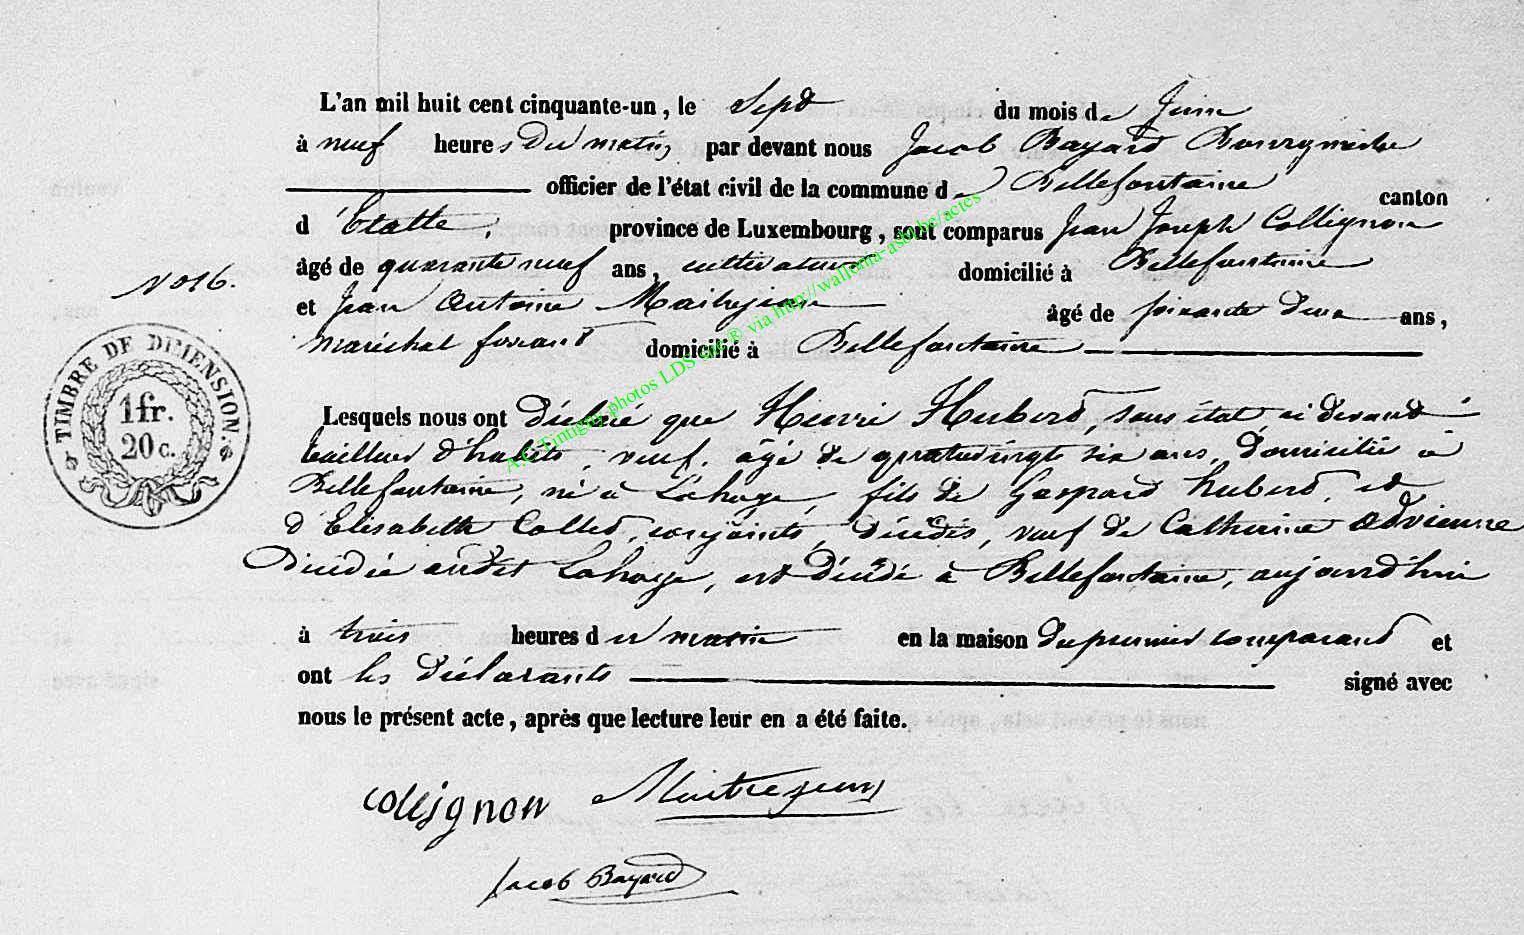 L'an mil huit cent cinquante-un, le Sept du mois de Juin
à neuf heures Du matin, par devant nous Jacob Bayard Bourgmestre
officier de l'état civil de la commune de Bellefontaine canton
d'Etalle, province de Luxembourg, sont comparus Jean Joseph Collignon
âgé de quarante neuf ans, cultivateur domicilié à Bellefontaine
No 16.
et Jean Antoine Maitrejean âgé de soixante deux ans,
maréchal ferrant domicilié à Bellefontaine
TIMBRE DE DIMENSION.
1 fr.
20 c.
Lesquels nous ont déclaré que Henri Hubert, sans état, ci devant
tailleur d'habits, veuf, âgé de quatrevingt six ans, domicilié à
Bellefontaine, né à Lahage, fils de Gaspard hubert, et
d'Elisabeth Collet, conjoints, décédés, veuf de Catherine Advienne
Décédée audit Lahage, est décédé à Bellefontaine, aujourd'hui
à trois heures du matin en la maison du premier comparant et
ont les déclarants signé avec
nous le présent acte, après que lecture leur en a été faite.
collignon Maitrejean
Jacob Bayard
A.C. Tintigny photos LDS sur ® via http://wallonia-asbl.be/actes